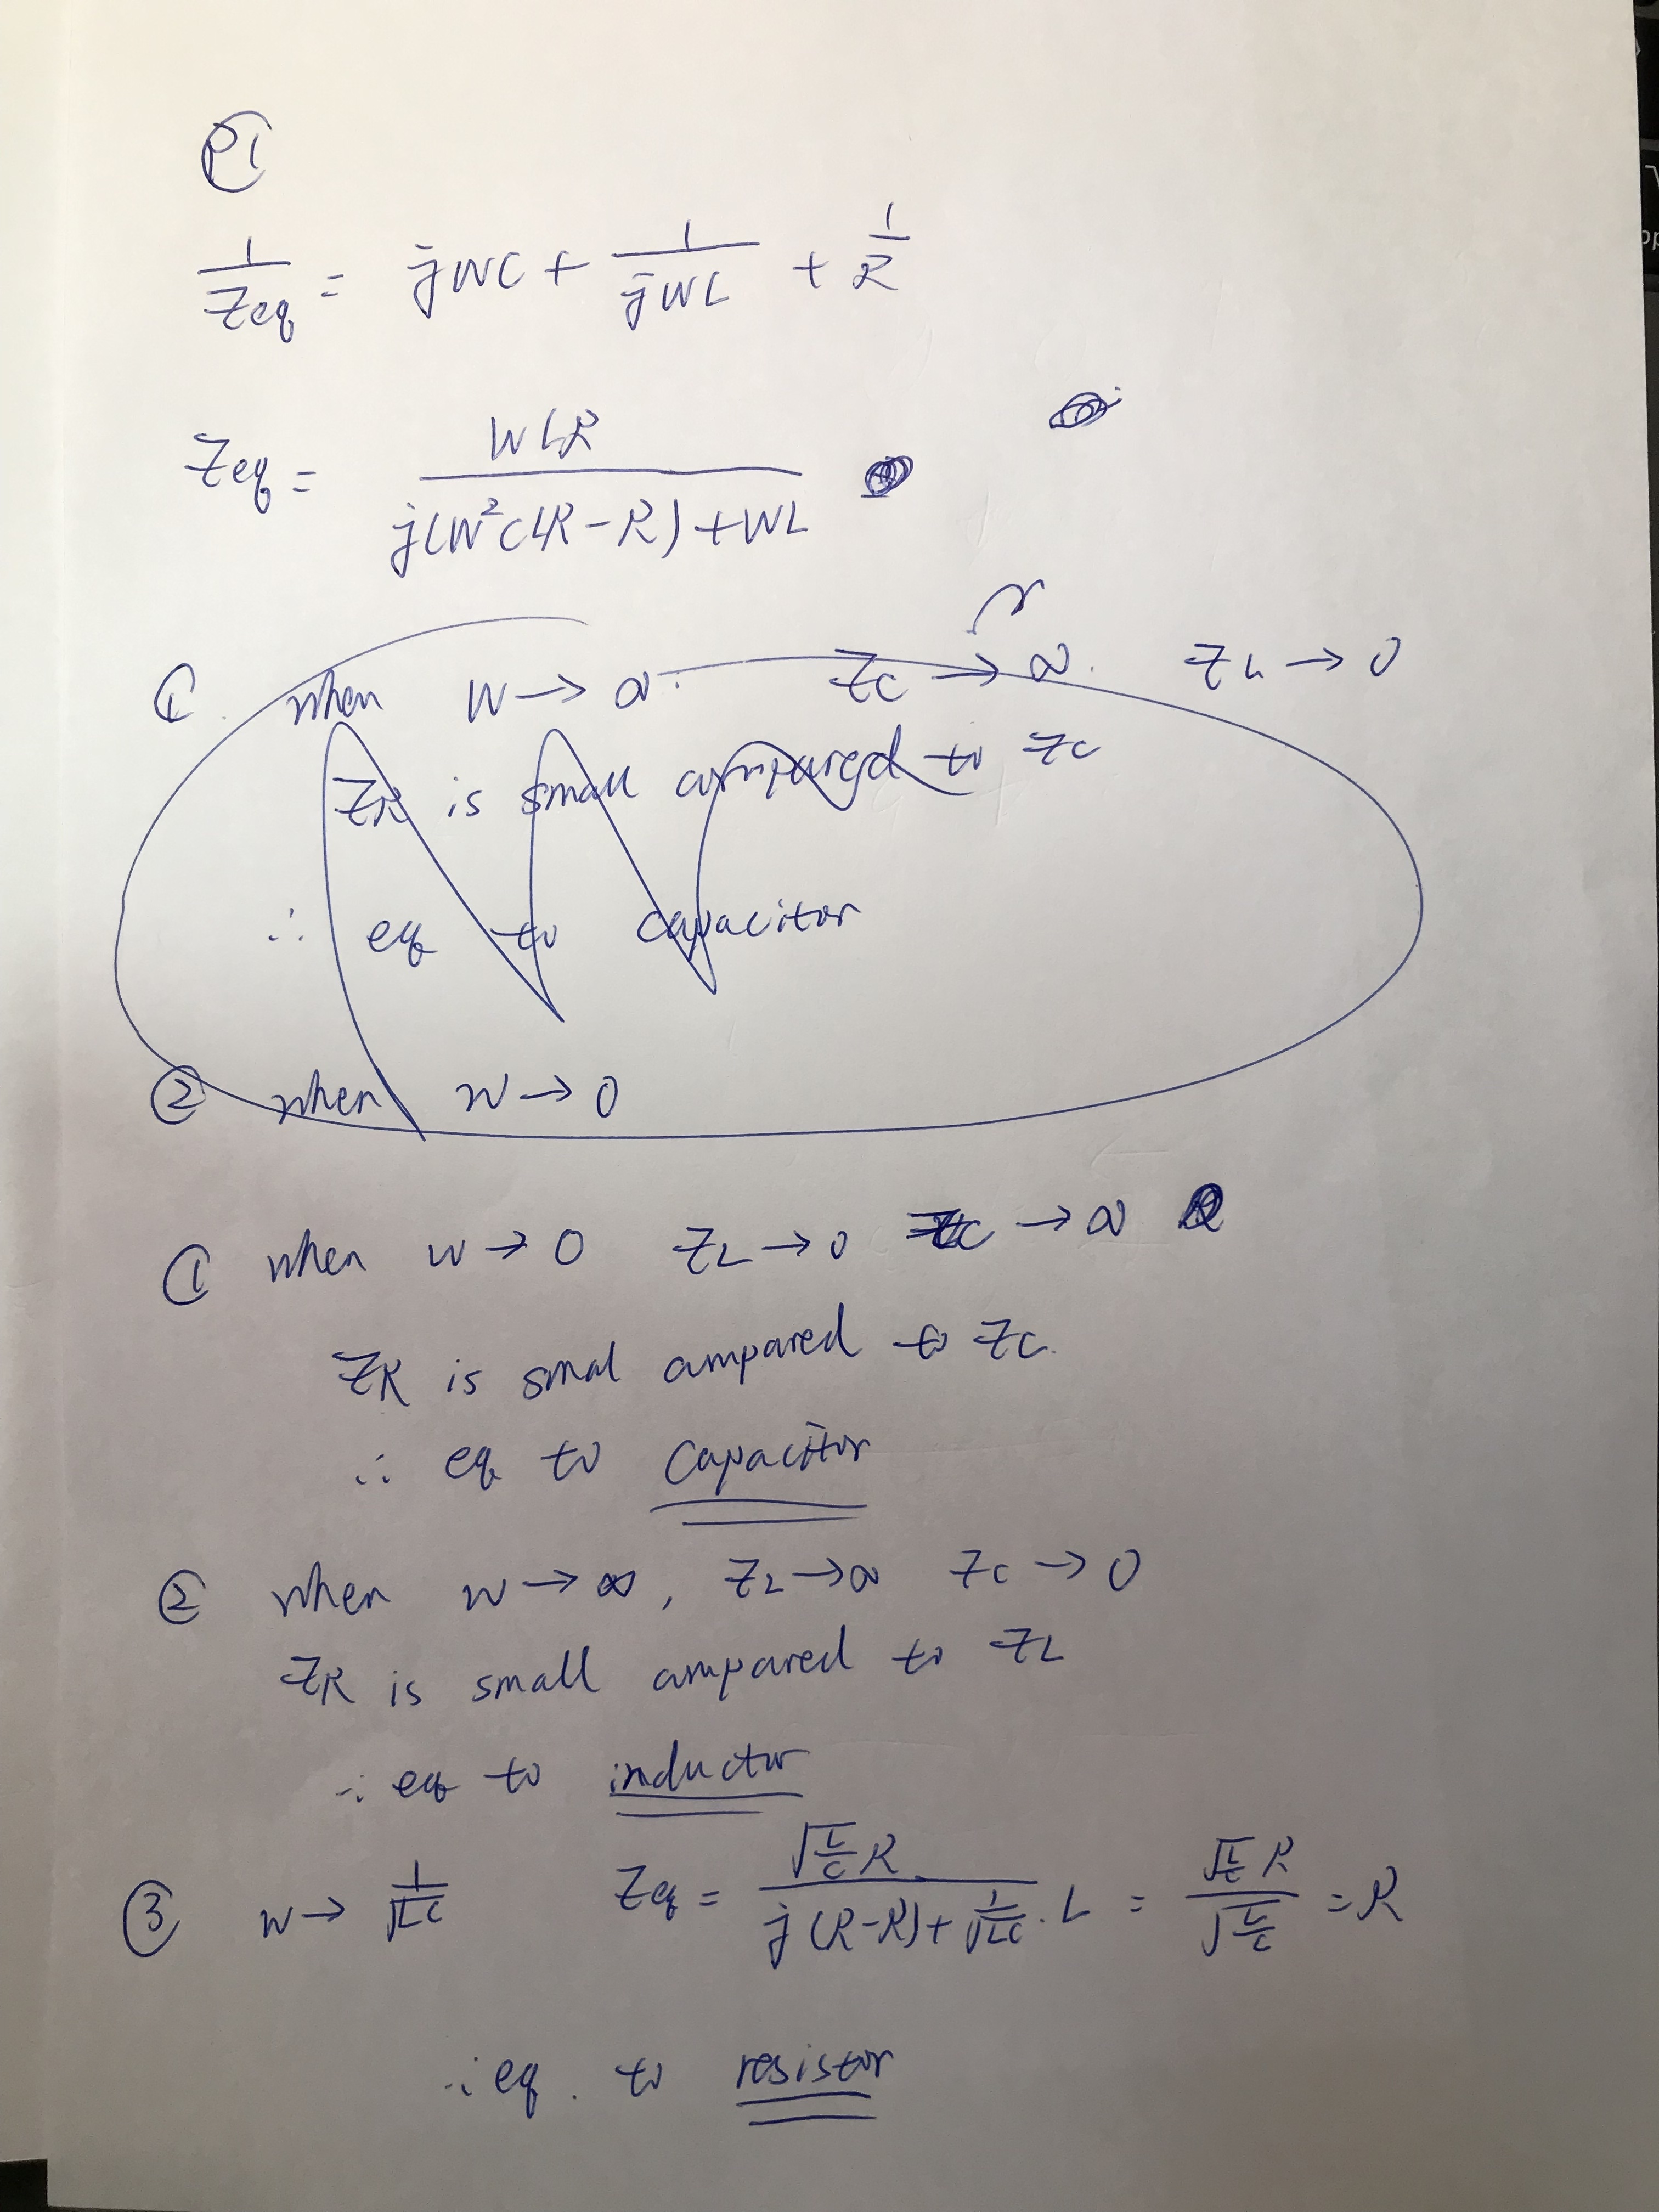 P1
1/Zeq = jWC + 1/jWL + 1/R
Zeq = WLR / j(W²CLR - R) + WL
① when W → ∞. Zc → ∞. ZL → 0
ZR is small compared to Zc
∴ eq to capacitor
② when w → 0
① when w → 0 ZL → 0 Zc → ∞
ZR is smal compared to Zc.
∴ eq to capacitor
② when w → ∞, ZL → ∞ Zc → 0
ZR is small compared to ZL
∴ eq to inductor
③ w → 1/√LC Zeq = √(L/C) R / j(R-R) + 1/√LC · L = √(L/C) R / √(L/C) = R
∴ eq. to resistor